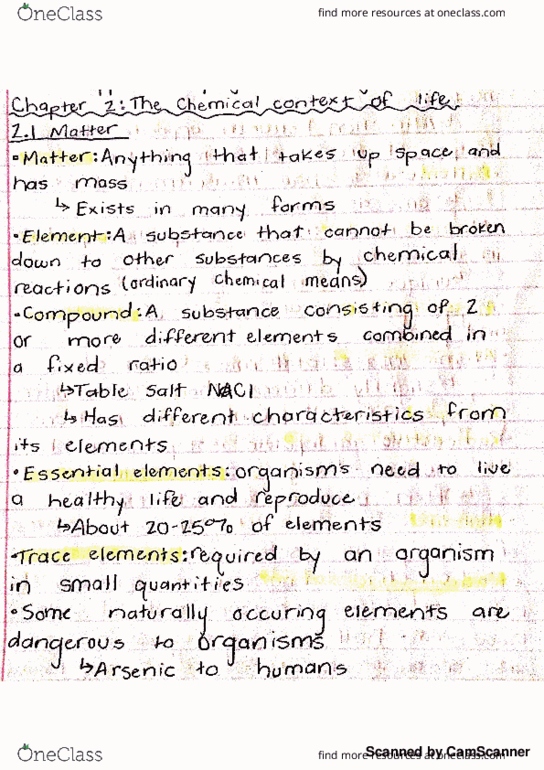 OneClass find more resources at oneclass.com
Chapter 2: The Chemical context of life
2.1 Matter
• Matter: Anything that takes up space and
has mass
↳ Exists in many forms
• Element: A substance that cannot be broken
down to other substances by chemical
reactions (ordinary chemical means)
• Compound: A substance consisting of 2
or more different elements combined in
a fixed ratio
↳ Table salt NACl
↳ Has different characteristics from
its elements
• Essential elements: organisms need to live
a healthy life and reproduce
↳ About 20-25% of elements
• Trace elements: required by an organism
in small quantities
• Some naturally occuring elements are
dangerous to organisms
↳ Arsenic to humans
OneClass find more resources at oneclass.com
Scanned by CamScanner